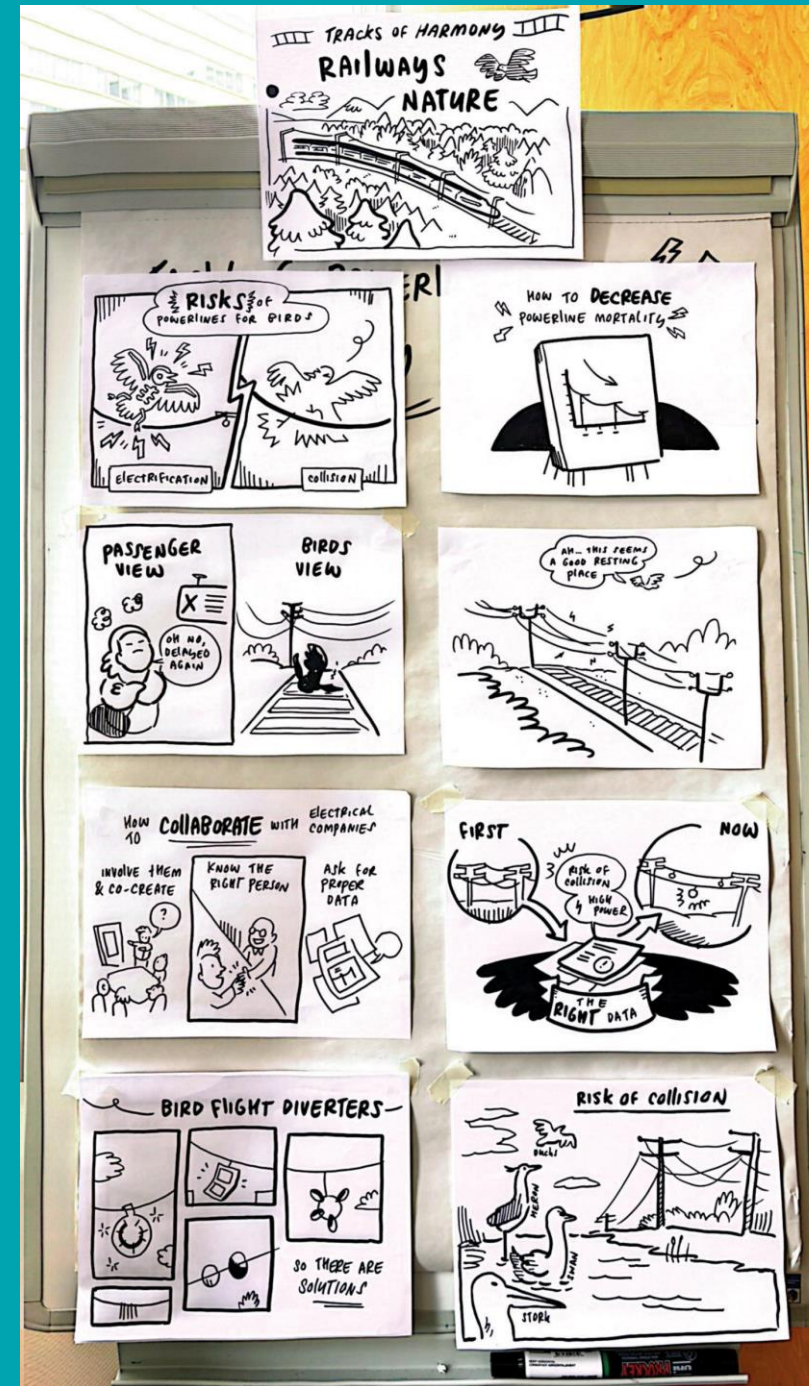 TRACKS OF HARMONY
RAILWAYS
NATURE
RISKS OF
POWERLINES FOR BIRDS
ELECTRIFICATION
COLLISION
HOW TO DECREASE
POWERLINE MORTALITY
PASSENGER
VIEW
X
OH NO,
DELAYED
AGAIN
BIRDS
VIEW
AH... THIS SEEMS
A GOOD RESTING
PLACE
HOW TO COLLABORATE WITH ELECTRICAL COMPANIES
INVOLVE THEM
& CO-CREATE
?
KNOW THE
RIGHT PERSON
ASK FOR
PROPER
DATA
FIRST
NOW
RISK OF
COLLISION
HIGH
POWER
THE
RIGHT DATA
BIRD FLIGHT DIVERTERS
SO THERE ARE
SOLUTIONS
RISK OF COLLISION
DUCKS
HERON
SWAN
STORK
uni